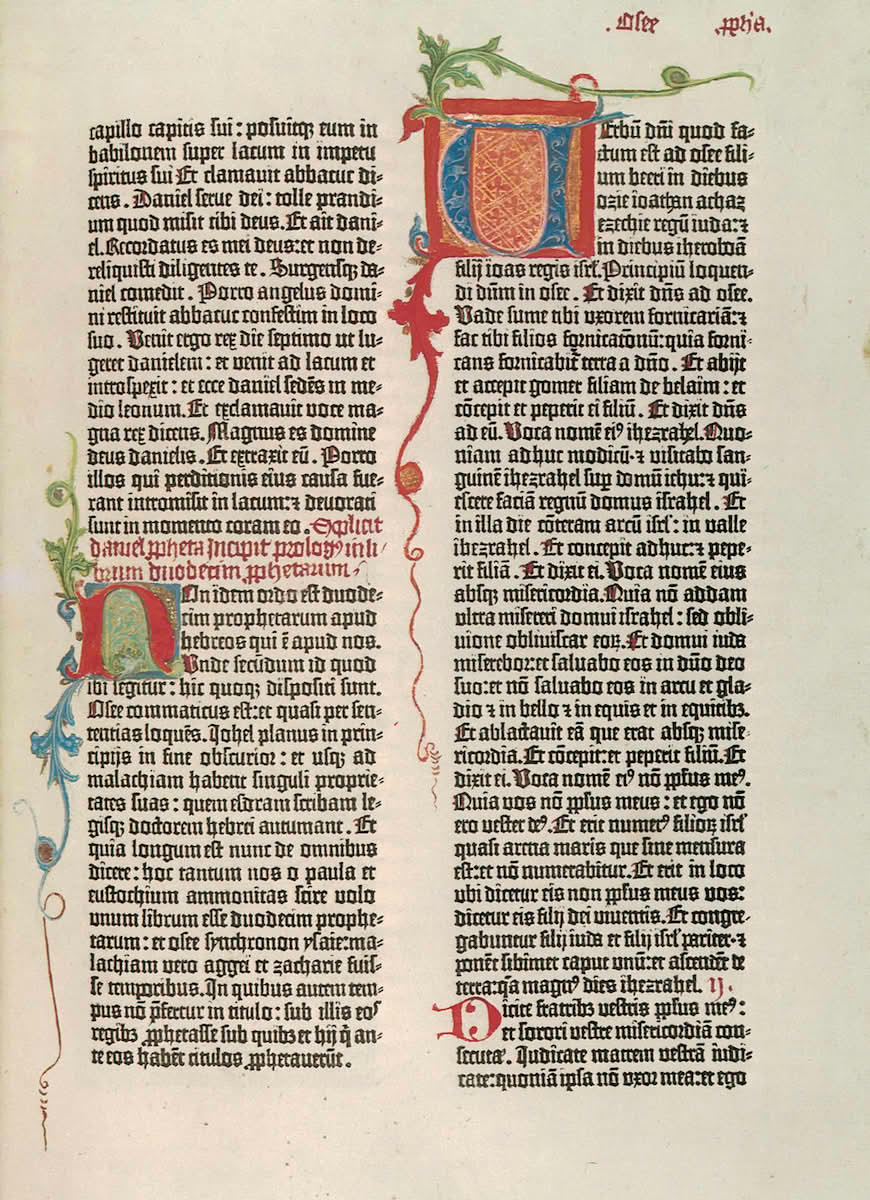 .Osee .ꝓph'a.
capillo capitis sui: posuitqꝫ eum in
babilonem super lacum in impetu
spiritus sui Et clamauit abbacuc di⸗
cens. Daniel serue dei: tolle prandi⸗
um quod misit tibi deus. Et ait dani⸗
el. Recordatus es mei deus: et non de⸗
reliquisti diligentes te. Surgensqꝫ da⸗
niel comedit. Porro angelus domi⸗
ni restituit abbacuc confestim in loco
suo. Venit ergo rex die septimo ut lu⸗
geret danielem: et venit ad lacum et
introspexit: et ecce daniel sedēs in me⸗
dio leonum. Et exclamauit voce ma⸗
gna rex dicens. Magnus es domine
deus danielis. Et extraxit eū. Porro
illos qui perditionis eius causa fue⸗
rant intromisit in lacum: ⁊ deuorati
sunt in momento coram eo. Explicit
daniel ꝓpheta Incipit prologꝰ in li⸗
brum duodecim ꝓphetarum
NOn idem ordo est duode⸗
cim prophetarum apud
hebreos qui ē apud nos.
Vnde secūdum id quod
ibi legitur: hic quoqꝫ dispositi sunt.
Osee commaticus est: et quasi per sen⸗
tentias loquēs. Iohel planus in prin⸗
cipijs in fine obscurior: et usqꝫ ad
malachiam habent singuli proprie⸗
tates suas: quem esdram scribam le⸗
gisqꝫ doctorem hebrei autumant. Et
quia longum est nunc de omnibus
dicere: hoc tantum nos o paula et
eustochium ammonitas scire volo
unum librum esse duodecim prophe⸗
tarum: et osee synchronon ysaie: ma⸗
lachiam vero aggei et zacharie fuis⸗
se temporibus. In quibus autem tem⸗
pus nō p̄fertur in titulo: sub illis eos
regibꝫ ꝓphetasse sub quibꝫ et hij q̄ an⸗
te eos habēt titulos ꝓphetauerūt.
VErbū dn̄i quod fa⸗
ctum est ad osee fili⸗
um beeri in diebus
ozie ioathan achaz
ezechie regū iuda: ⁊
in diebus iheroboā
filij ioas regis isrl̄. Principiū loquen⸗
di dn̄m in osee. Et dixit dn̄s ad osee.
Vade sume tibi vxorem fornicariā: ⁊
fac tibi filios fornicatōnū: quia forni⸗
cans fornicabit᷑ terra a dn̄o. Et abijt
et accepit gomer filiam de belaim: et
cōcepit et peperit ei filiū. Et dixit dn̄s
ad eū. Voca nomē eiꝰ ihezrahel. Quo⸗
niam adhuc modicū ⁊ visitabo san⸗
guinē ihezrahel suꝑ domū iehu: ⁊ qui⸗
escere faciā regnū domus israhel. Et
in illa die cōteram arcū isrl̄: in valle
ihezrahel. Et concepit adhuc: ⁊ pepe⸗
rit filiā. Et dixit ei. Voca nomē eius
absqꝫ misericordia. Quia nō addam
vltra misereri domui israhel: sed obli⸗
uione obliuiscar eoꝝ. Et domui iuda
miserebor: et saluabo eos in dn̄o deo
suo: et nō saluabo eos in arcu et gla⸗
dio ⁊ in bello ⁊ in equis et in equitibꝫ.
Et ablactauit eā que erat absqꝫ mise⸗
ricordia. Et cōcepit: et peperit filiū. Et
dixit ei. Voca nomē eiꝰ nō ꝓpl̄us meꝰ.
Quia vos nō ꝓpl̄us meus: et ego nō
ero vester dꝰ. Et erit numerꝰ filioꝝ isrl̄
quasi arena maris que sine mensura
est: et nō numerabitur. Et erit in loco
vbi dicetur eis non ꝓpl̄us meus vos:
dicetur eis filij dei viuentis. Et congre⸗
gabuntur filij iuda et filij isrl̄ pariter: ⁊
ponēt sibimet caput vnū: et ascendēt de
terra: q̄a magnꝰ dies ihezrahel. IJ.
Dicite fratribꝫ vestris ꝓpl̄us meꝰ:
et sorori vestre misericordiā con⸗
secuta. Iudicate matrem vestrā iudi⸗
cate: quoniā ipsa nō vxor mea: et ego